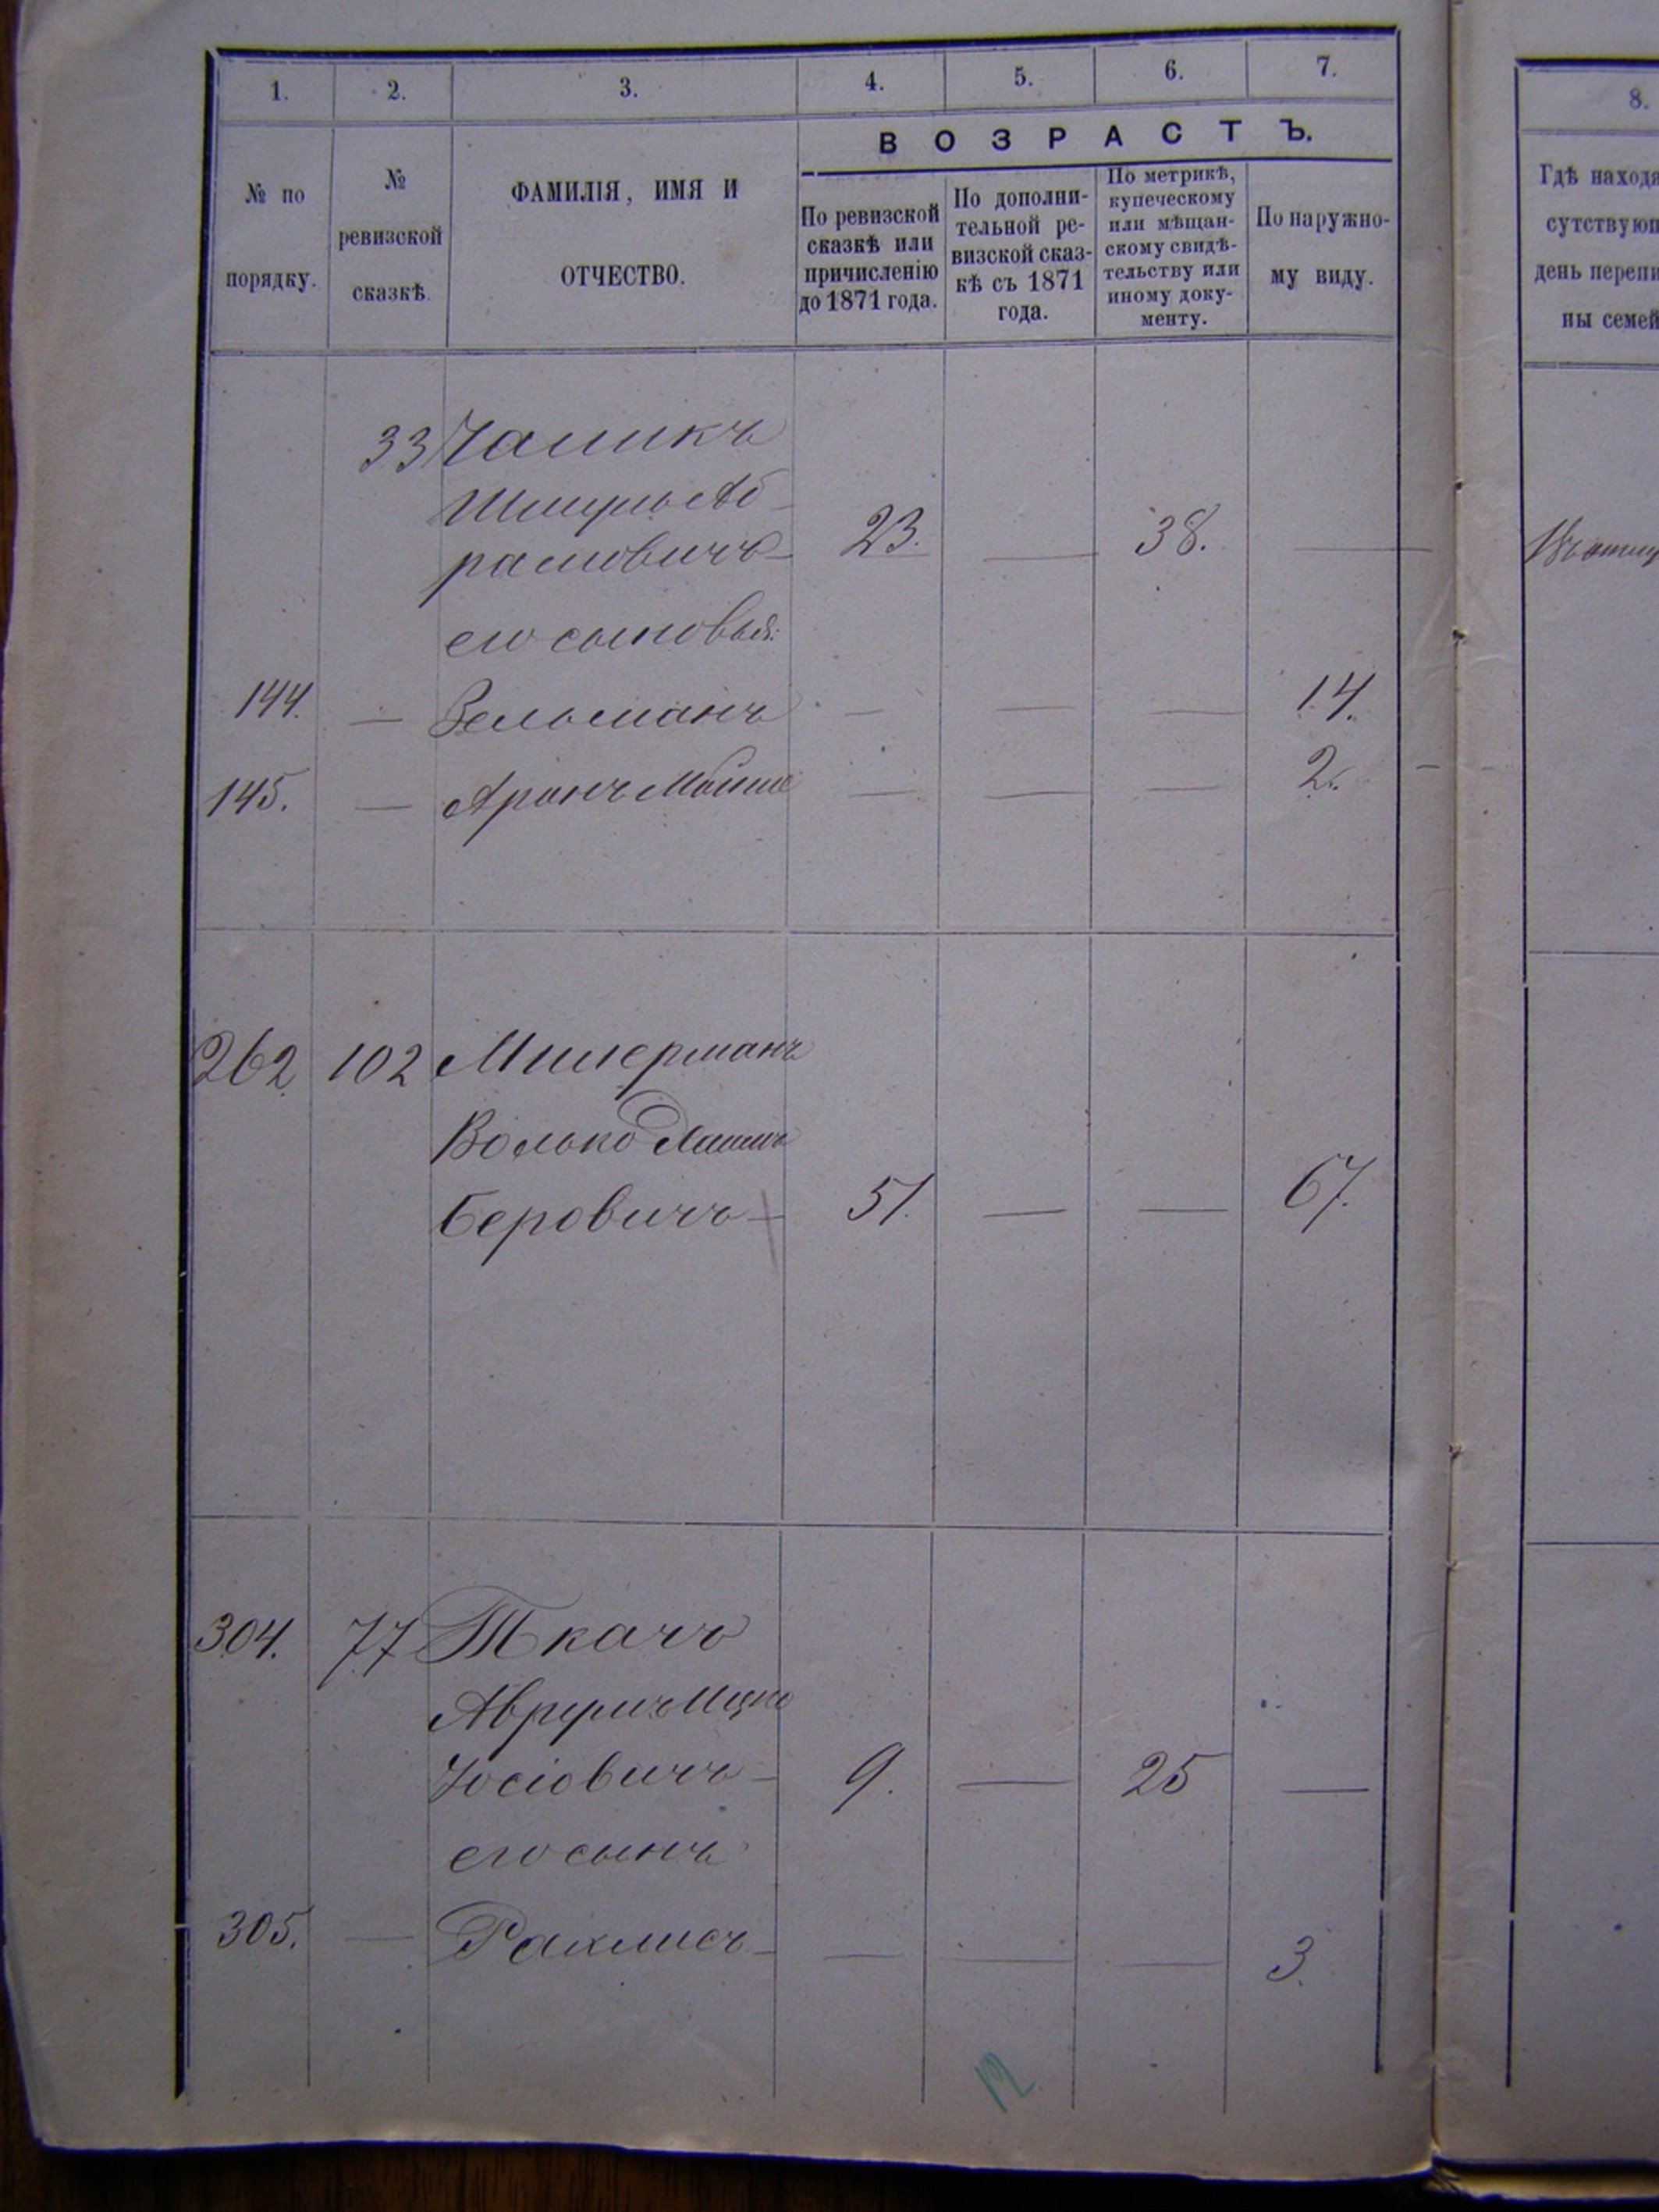 1. 2. 3. 4. 5. 6. 7.
ВОЗРАСТЪ.
№ по порядку.
№ ревизской сказкѣ.
ФАМИЛІЯ, ИМЯ И ОТЧЕСТВО.
По ревизской сказкѣ или причисленію до 1871 года.
По дополнительной ревизской сказкѣ съ 1871 года.
По метрикѣ, купеческому или мѣщанскому свидѣтельству или иному документу.
По наружному виду.
33 Чашикъ
Шмуль Аб-
рамовичъ — 23. — 38. —
его сыновья:
144. — Зельманъ — — — 14.
145. — Аронъ Мошко — — — 2.
262 102 Милерманъ
Волько
Беровичъ — 51. — — 67.
304. 77 Ткачъ
Аврумъ Ицко
Іосіовичъ — 9. — 25 —
его сынъ
305. — — — — — 3.
12
8.
Гдѣ находя
сутствующ
день перепи
ны семей